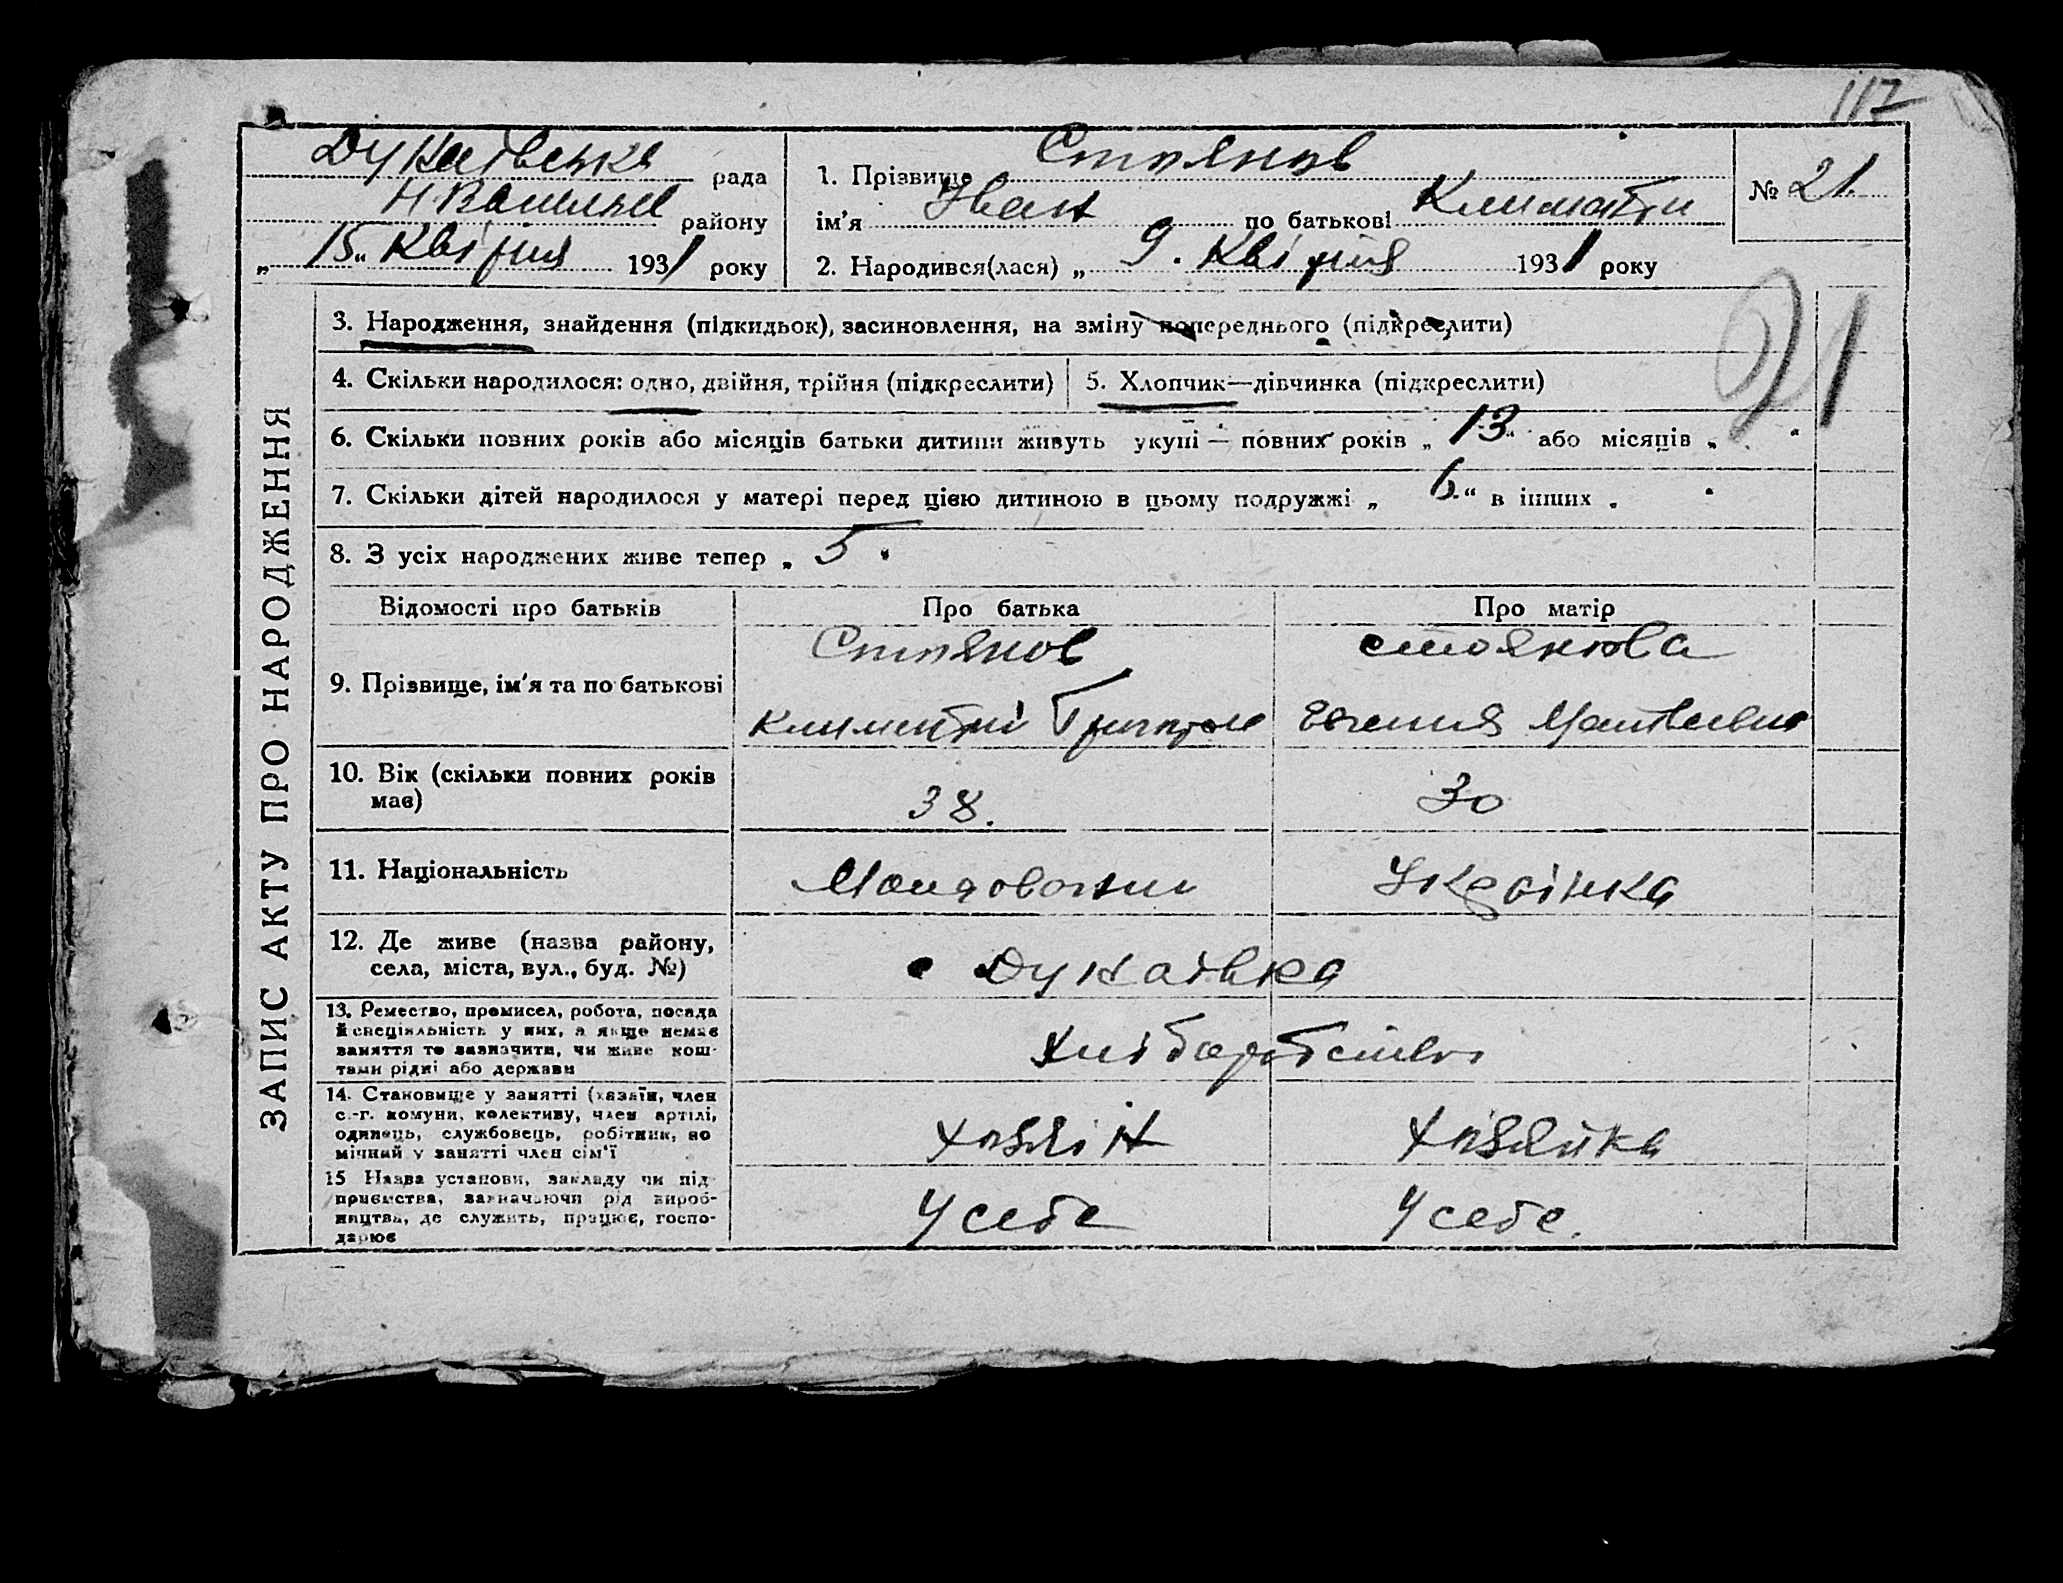 117
Дукаївська рада
Н. Василів району
„15“ Квітня 1931 року
1. Прізвище Стоянов
ім'я Іван по батькові Климентій
2. Народився(лася) „9. Квітня 1931 року
№ 21.
21
ЗАПИС АКТУ ПРО НАРОДЖЕННЯ
3. Народження, знайдення (підкидьок), засиновлення, на зміну попереднього (підкреслити)
4. Скільки народилося: одно, двійня, трійня (підкреслити)
5. Хлопчик—дівчинка (підкреслити)
6. Скільки повних років або місяців батьки дитини живуть укупі — повних років „13“ або місяців „ “
7. Скільки дітей народилося у матері перед цією дитиною в цьому подружжі „6“ в інших „
8. З усіх народжених живе тепер „5“
Відомості про батьків Про батька Про матір
9. Прізвище, ім'я та по батькові
Стоянов
Климентій
Стоянова
Евгения Матвеевна
10. Вік (скільки повних років
має)
38.
30
11. Національність
Молдованин
Украінка
12. Де живе (назва району,
села, міста, вул., буд. №)
Дукаівка
13. Ремество, промисел, робота, посада
й спеціяльність у них, а якщо немає
заняття то зазначити, чи живе кош-
тами рідні або держави
Хліборобство
14. Становище у занятті (хазяїн, член
с.-г. комуни, колективу, член артілі,
одинець, службовець, робітник, по
мічний у занятті член сім'ї
Хозяін
Хозяйка
15 Назва установи, закладу чи під-
приємства, зазначаючи рід вироб-
ництва, де служить, працює, госпо-
дарює
У себе
У себе.